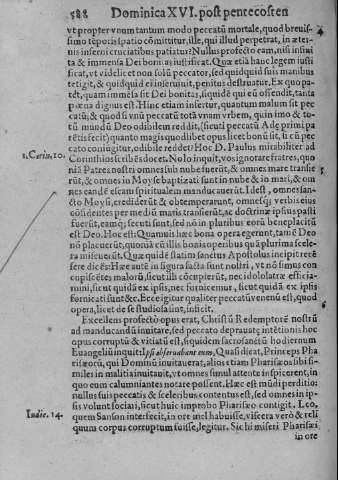 588 Dominica XVI. post pentecosten
vt propter vnum tantum modo peccatũ mortale, quod breuis-
simo tẽporis spatio cõmittitur, ille, qui illud perpetrat, in æter-
nis inferni cruciatibus patiatur? Nullus profecto eam, nisi infiui
ta & immensa Dei bonitas iustificat. Quæ etiã hanc legem iusti
ficat, vt videlicet non solũ peccator, sed quidquid suis manibus
tetigit, & quidquid ei inseruiuit, penitus destruatur. Ex quo pa-
tet, quam immẽsa sit Dei bonitas, siquidẽ qui eũ offendit, tanta
pœna dignus est. Hinc etiam infertur, quantum malum sit pec
catũ, & quod si vnũ peccatũ tota vnum vrbem, quin imo & to-
tũ mundũ Deo odibilem reddit, (sicuti peccatũ Adę primi pa
rẽtis fecit) quanto magis quodlibet opus licet bonũ sit, si cũ pec
cato coniugitur, odibile reddet? Hoc D. Paulus mirabiliter ad
1. Corin. 10. Corinthios scribẽs docet. Nolo inquit, vos ignorare fratres, quo
niã Patres nostri omnes sub nube fuerũt, & omnes mare transie
rũt, & omnes in Moyse baptizati sunt in nube & in mari, & om
nes eandẽ escam spiritualem manducauerũt. Id est, omnes san-
cto Moysi, crediderũt & obtemperarunt, omnesq; verbis eius
cõfidentes per mediũ maris transierũt, ac doctrinæ ipsius pasti
fuerũt, eamq; secuti sunt, sed nõ in pluribus eorũ beneplacitũ
est Deo. Hoc est: Quamuis hæc bona opera egerunt, tamẽ Deo
nõ placuerũt, quoniã cũ illis bonis operibus quã plurima scele-
ra miscuerũt. Quæ quidẽ statim sanctus Apostolus incipit recẽ
sere dicẽs: Hæc autẽ in figura facta sunt nostri, vt nõ simus con
cupiscẽtes malorũ, sicut illi cõcupierũt, nec idololatræ efficia-
mini, sicut quidã ex ipsis, nec fornicemur, sicut quidã ex ipsis
fornicati sunt &c. Ecce igitur qualiter peccatũ venenũ est, quod
opera, licet de se studiosa sint, inficit.
Excellens profectò opus erat, Christũ Redemptorẽ nostrũ
ad manducandũ inuitare, sed peccato deprauatę intẽtionis hoc
opus corruptũ & vitiatũ est, siquidem sacrosanctũ hodiernum
Euangeliũ inquit: Ipsi obseruabant eum, Quasi dicat, Princeps Pha
risæorũ, qui Dominũ inuitauerat, alios etiam Pharisæos sibi si-
miles in malitia inuitauit, vt omnes simul attente inspicerent, in
quo eum calumniantes notare possent. Hæc est mũdi perditio:
nullus suis peccatis & sceleribus contentus est, sed omnes in ip-
sis volunt sociari, sicut huic improbo Pharisæo contigit. Leo,
Iudic. 14. quem Sanson interfecit, in ore mel habuisse, viscera verò & reli
quum corpus corruptum fuisse, legitur. Sic hi miseri Pharisæi,
in ore